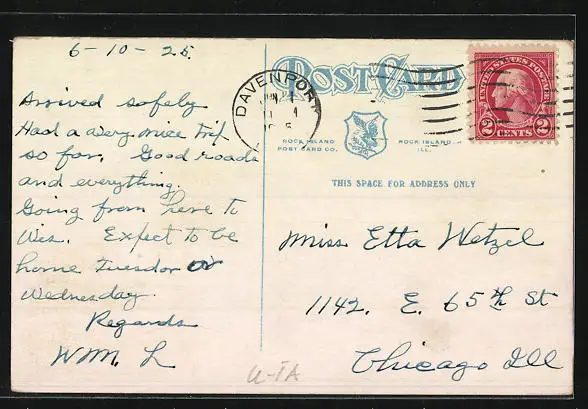 6-10-25.
Arrived safely
Had a very nice trip
so far. Good roads
and everything.
Going from here to
Wis. Expect to be
home Tuesday or
Wednesday.
Regards
WM. L
POST CARD
DAVENPORT
UNITED STATES POSTAGE
2 CENTS 2
ROCK ISLAND
POST CARD CO.
ROCK ISLAND
ILL.
THIS SPACE FOR ADDRESS ONLY
Miss Etta Wetzel
1142. E. 65th St
Chicago Ill
U-IA